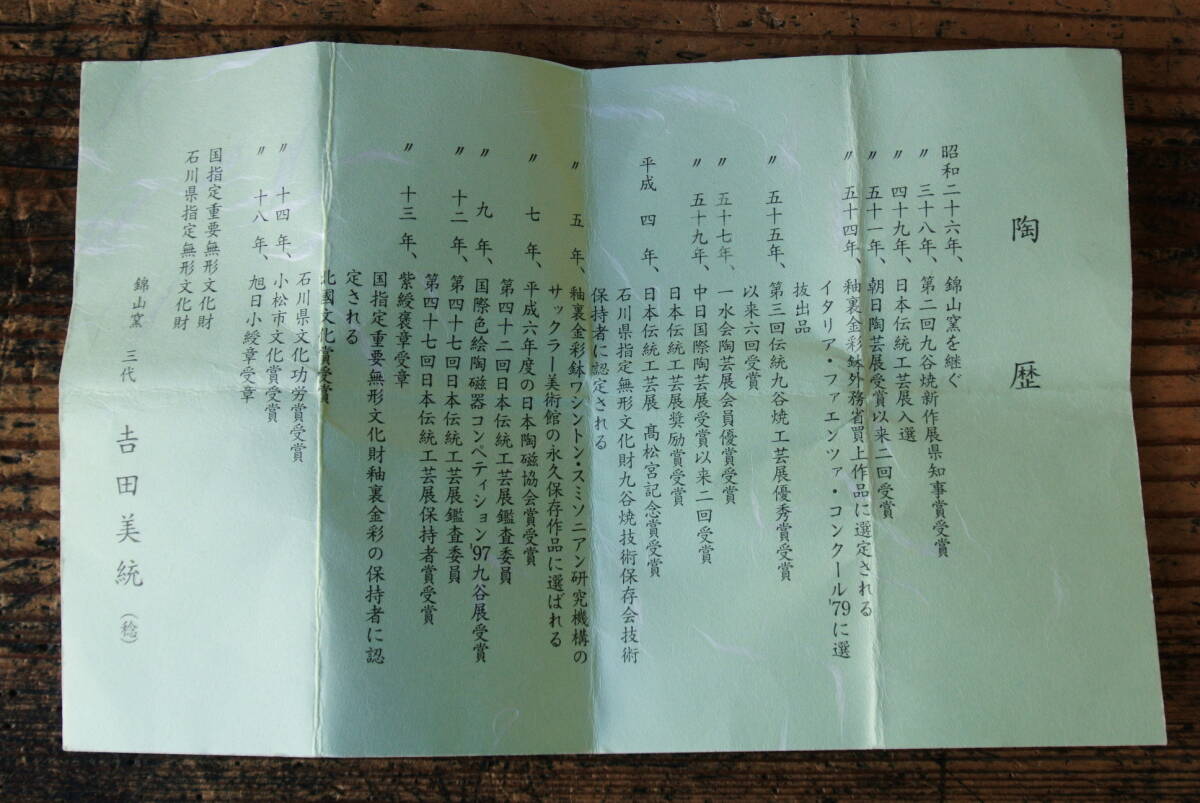 陶歴
昭和二十六年、錦山窯を継ぐ
〃 三十八年、第二回九谷焼新作展県知事賞受賞
〃 四十九年、日本伝統工芸展入選
〃 五十一年、朝日陶芸展受賞以来二回受賞
〃 五十四年、釉裏金彩鉢外務省買上作品に選定される
イタリア・ファエンツァ・コンクール'79に選
抜出品
〃 五十五年、第三回伝統九谷焼工芸展優秀賞受賞
以来六回受賞
〃 五十七年、一水会陶芸展会員優賞受賞
〃 五十九年、中日国際陶芸展受賞以来二回受賞
日本伝統工芸展奨励賞受賞
平成 四 年、日本伝統工芸展 髙松宮記念賞受賞
石川県指定無形文化財九谷焼技術保存会技術
保持者に認定される
〃 五 年、釉裏金彩鉢ワシントン・スミソニアン研究機構の
サックラー美術館の永久保存作品に選ばれる
〃 七 年、平成六年度の日本陶磁協会賞受賞
第四十二回日本伝統工芸展鑑査委員
〃 九 年、国際色絵陶磁器コンペティション'97九谷展受賞
〃 十二 年、第四十七回日本伝統工芸展鑑査委員
第四十七回日本伝統工芸展保持者賞受賞
〃 十三 年、紫綬褒章受章
国指定重要無形文化財釉裏金彩の保持者に認
定される
北國文化賞受賞
石川県文化功労賞受賞
〃 十四 年、小松市文化賞受賞
〃 十八 年、旭日小綬章受章
国指定重要無形文化財
石川県指定無形文化財
錦山窯 三代 吉田美統(稔)